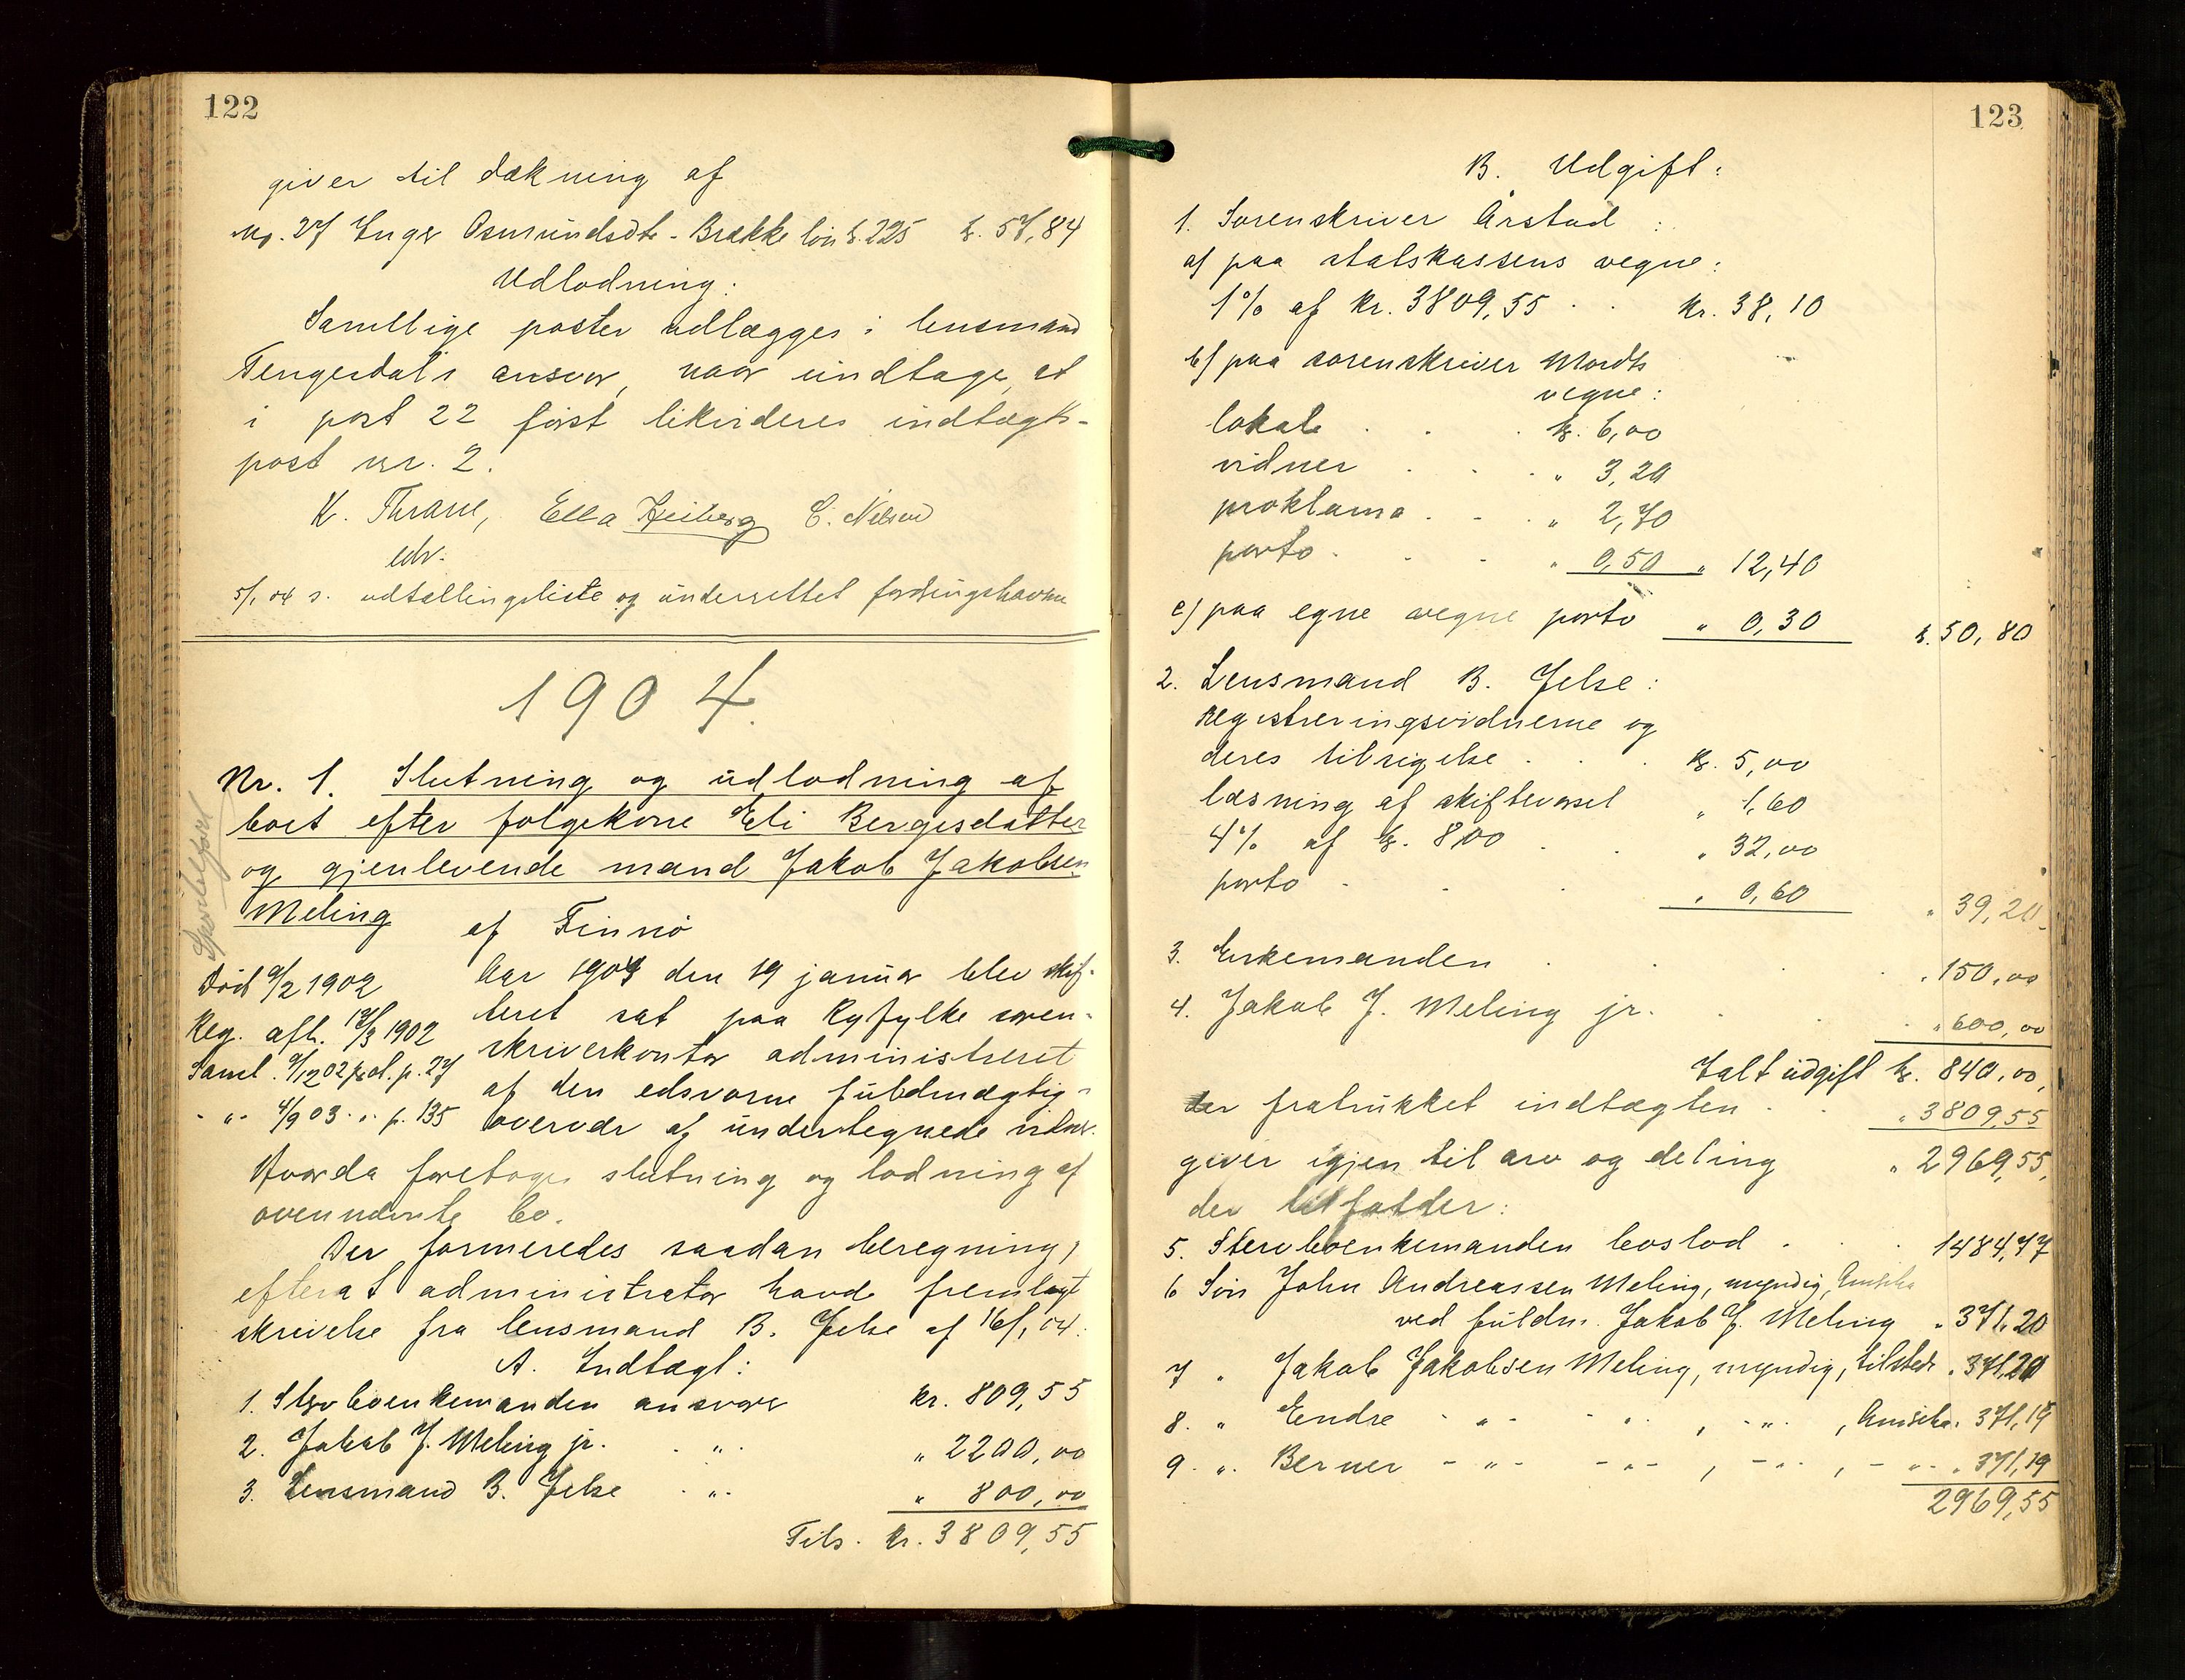 122
giver til dækning af
No. 27 Inger Osmundsdtr. Brække løn k. 225 k. 57,84
Udlodning:
Samtlige poster udlægges i lensmand
Tengesdals ansvar, naar undtages, at
i post 22 først likvideres indtægts-
post nr. 2.
K. Thrane, Ella Heiberg C. Nilsen
edv.
5/1 04 s. udtallingsliste og underrettet fordringshaverne
1904.
Nr. 1. Slutning og udlodning af
boet efter folgekone Eli Bergesdatter
og gjenlevende mand Jakob Jakobsen
Meling af Finnø
Død 9/2 1902
Reg. afh. 12/3 1902
Saml. 9/12 02 p. 27
" 4/9 03 " p. 135
Aar 1904 den 19 januar blev skif-
teret sat paa Ryfylke soren-
skriverkontor administreret
af den edsvorne fuldmægtig
overvær af undertegnede vidner.
Hvorda foretoges slutning og lodning af
ovennævnte bo.
Der formeredes saadan beregning,
efterat administrator havde fremlagt
skrivelse fra lensmand B. Jelse af 16/1 04:
A. Indtægt:
1. Stervboenkemanden ansvarer kr. 809,55
2. Jakob J. Meling jr. " " 2200,00
3. Lensmand B. Jelse " " 800,00
Tils. kr. 3809,55
123
B. Udgift:
1. Sorenskriver Årstad:
a) paa statskassens vegne:
1% af kr. 3809,55 kr. 38,10
b) paa sorenskriver Mordts
vegne:
lokale k. 6,00
vidner " 3,20
proklama " 2,70
porto " 0,50 " 12,40
c) paa egne vegne porto " 0,30 k. 50,80
2. Lensmand B. Jelse:
registreringsvidnerne og
deres tilsigelse k. 5,00
læsning af skiftevarsel " 1,60
4% af k. 800 " 32,00
porto " 0,60 " 39,20
3. Enkemanden " 150,00
4. Jakob J. Meling jr. " 600,00
Ialt udgift k. 840,00,
der fratrukket indtægten " 3809,55
giver igjen til arv og deling " 2969,55,
der tilfalder:
5. Stervboenkemanden boslod 1484,77
6 Søn John Andreassen Meling, myndig, Amerika
ved fuldm. Jakob J. Meling " 371,20
7 " Jakob Jakobsen Meling, myndig, tilstede " 371,20
8. " Endre - " - - " - , - " - , Amerika " 371,19
9. " Berner - " - - " - , - " - , - " - " 371,19
2969,55